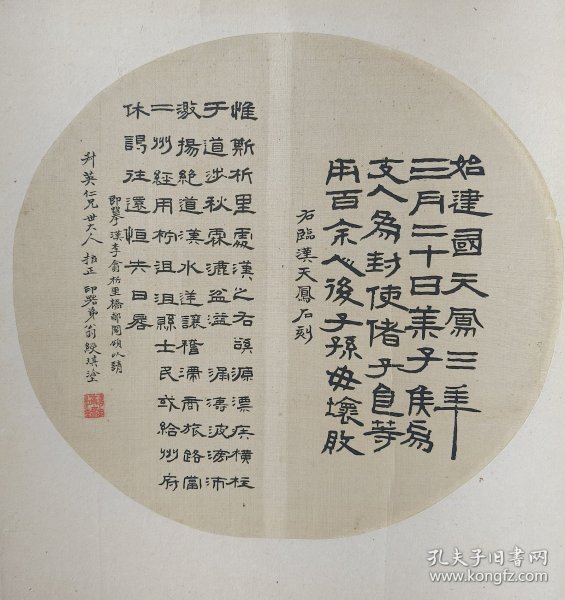 始建國天鳳三年
三月二十日萊子侯為
支人為封使偖子食等
用百余人後子孫毋壞敗
右臨漢天鳳石刻
惟斯析里處漢之右谿源漂疾橫柱
于道涉秋霖漉盆溢濤波滂沛
激揚絕道漢水逆讓稽滯商旅路當
二州經用柠沮沮縣士民或給州府
休謁往還恒失日晷
即摹漢李翕析里橋郙閣頌以請
升英仁兄世大人 指正 弟翁綬琪塗
孔夫子旧书网
www.kongfz.com